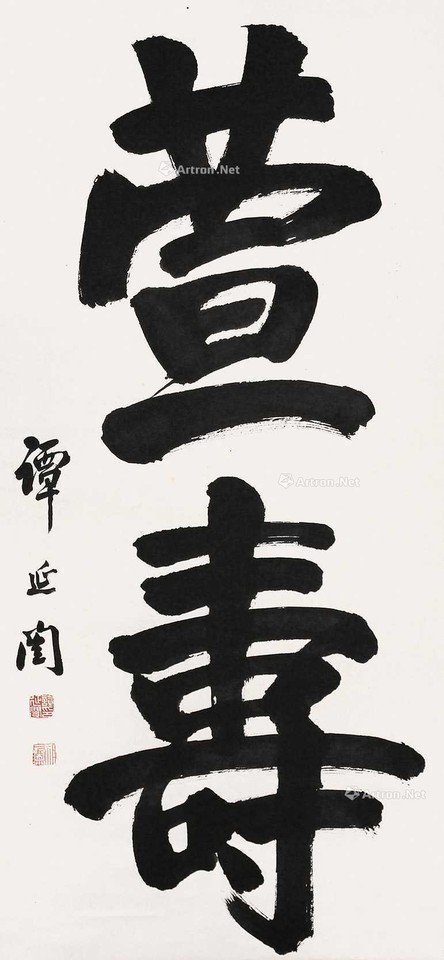 萱壽
譚延闓
Artron.Net
Artron.Net
Artron.Net